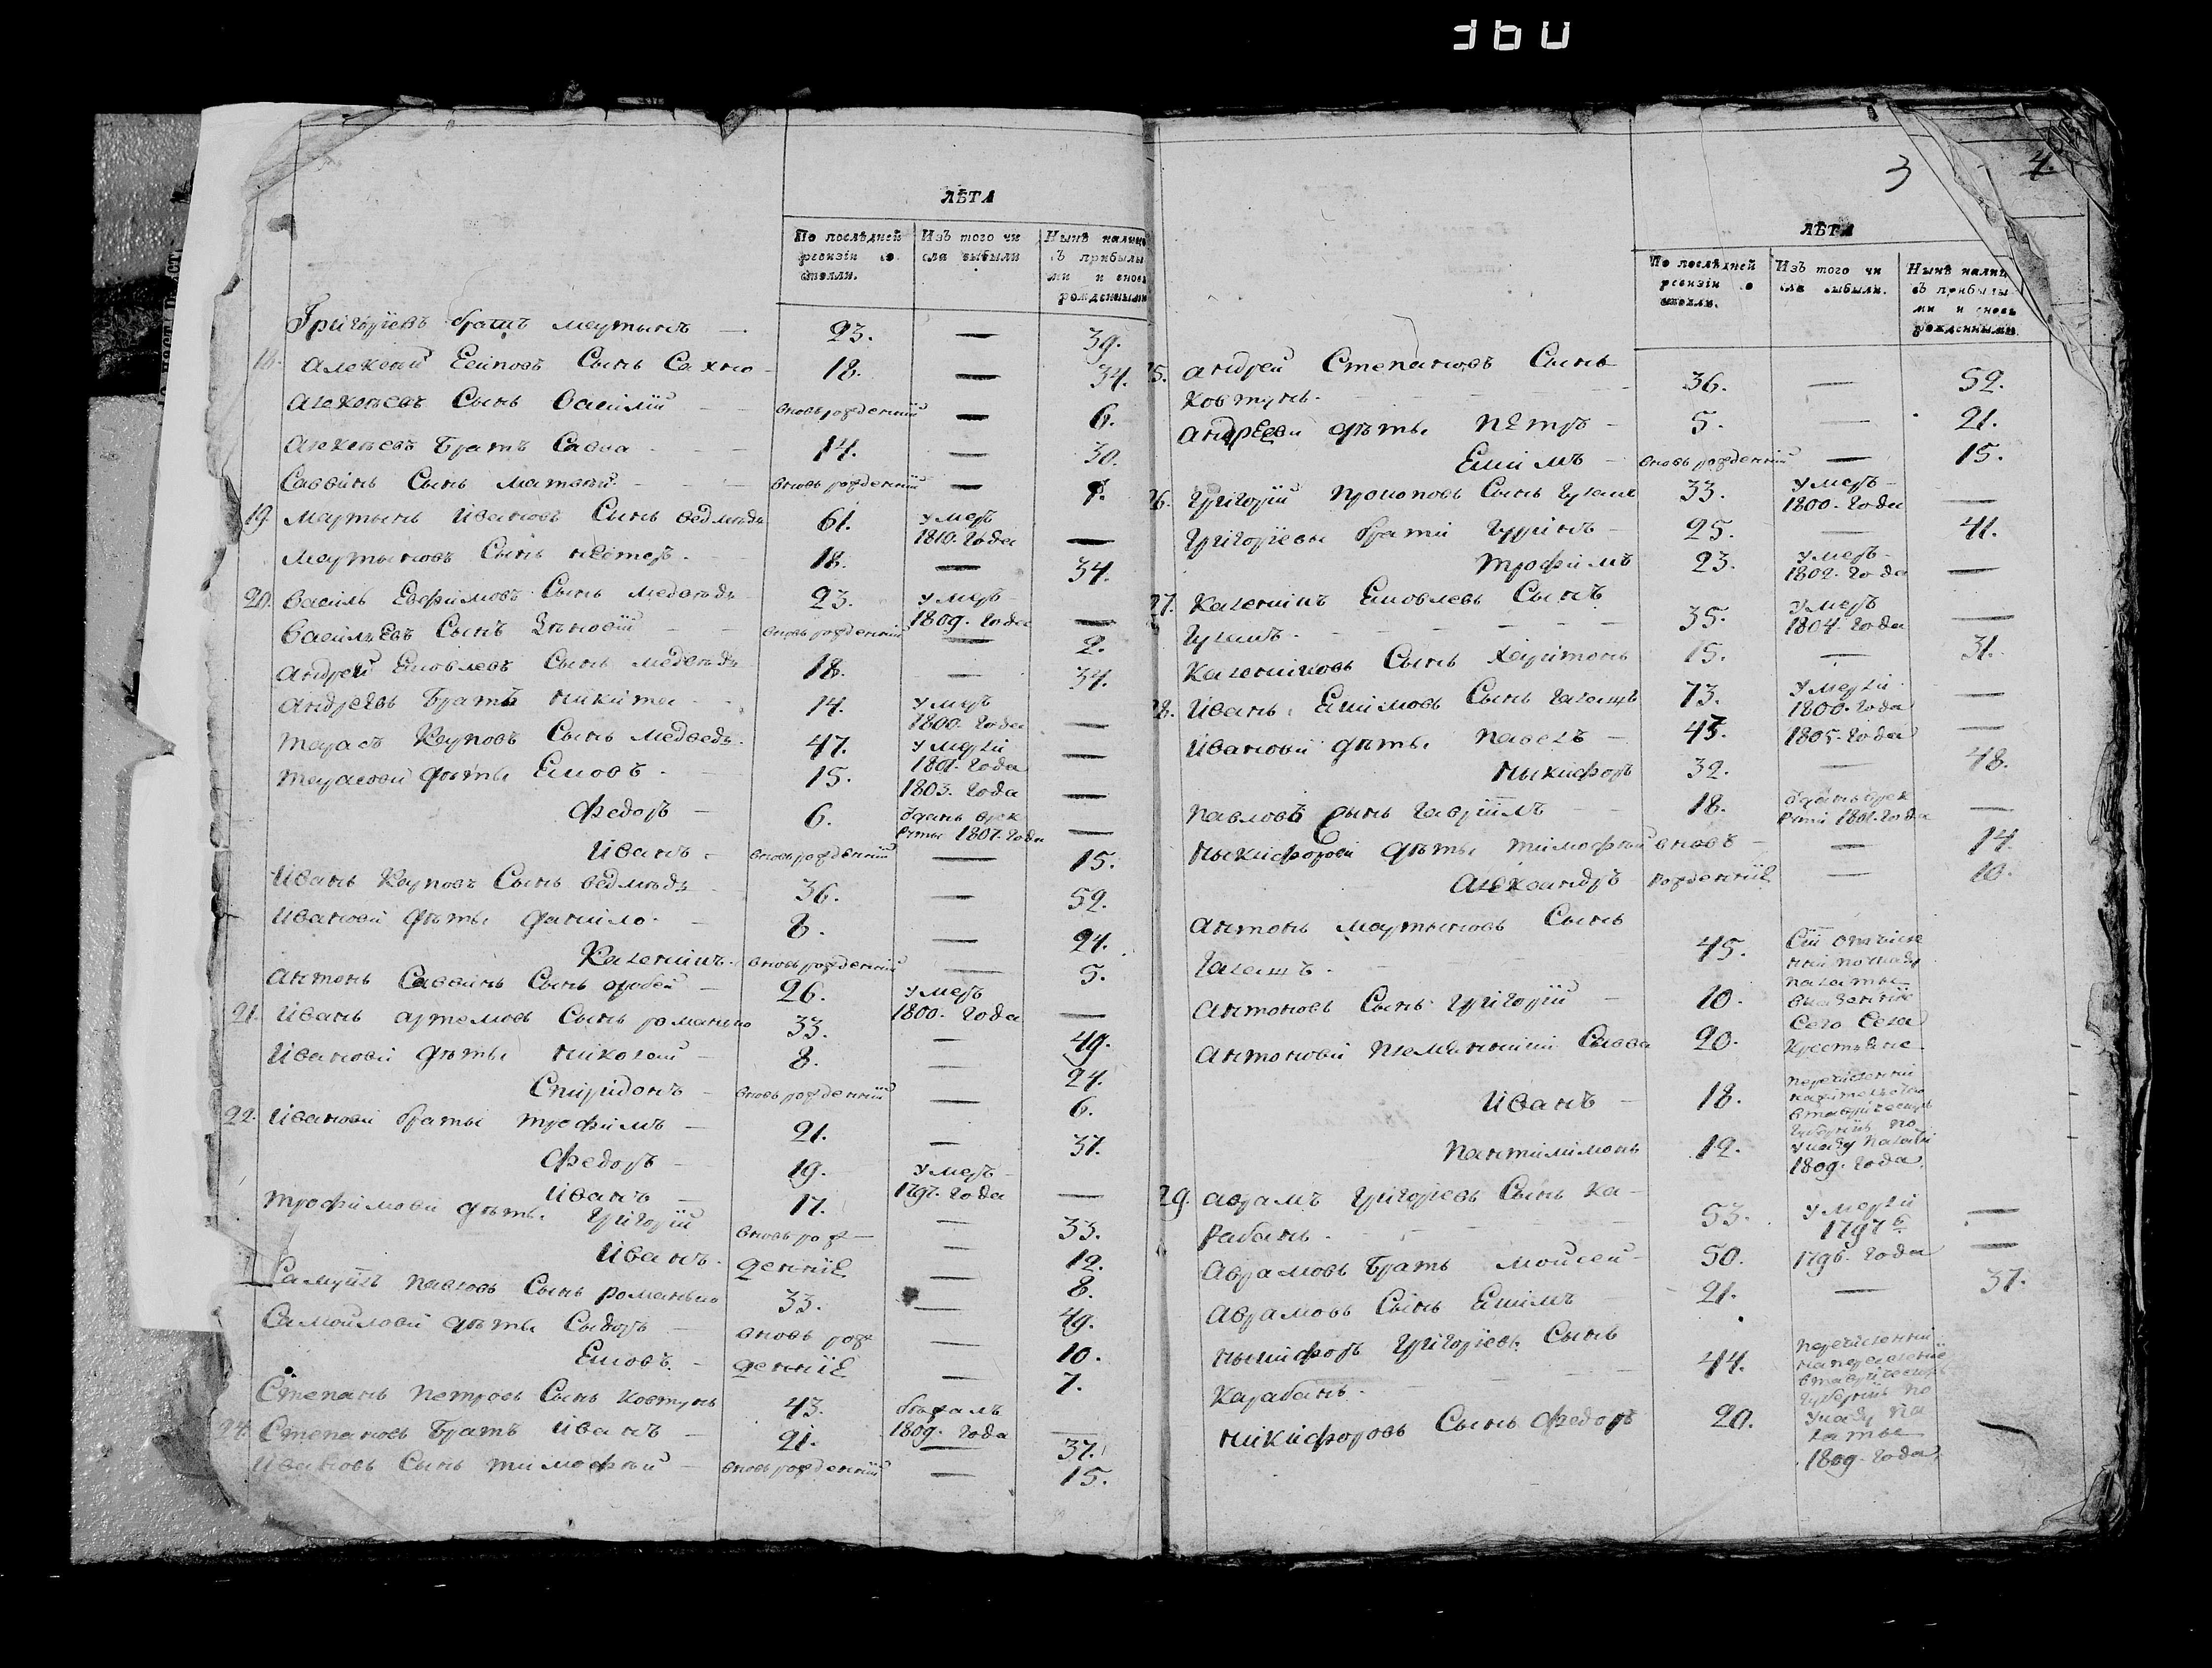 360
ЛѢТА
По послѣдней ревизіи состояли.
Изъ того числа выбыли
Нынѣ налицо съ прибылыми и вновь рожденными
Григорьевъ братъ мартынъ — 23. — 39.
18. Алексей Есиповъ Сынъ Сахно 18. — 34.
Алексеевъ Сынъ Василій — вновь рожденній — 6.
Алексеевъ Братъ Савва — 14. — 30.
Саввинъ Сынъ матвей вновь рожденній —
19. мартынъ Ивановъ Сынъ ведмедь 61. умеръ 1810. Года —
мартыновъ Сынъ нестеръ. 18. — 34.
20. Василь Евфимовъ Сынъ медведь 23. умеръ 1809. Года —
Васильевъ Сынъ Зѣновій — вновь рожденній — 2.
Андрей Яковлевъ Сынъ медведь 18. — 34.
Андреевъ Братъ никита 14. умеръ 1800. Года —
тарасъ Карповъ Сынъ медведь 47. умерли 1801. Года —
тарасови дѣты Яковъ 15. 1803. Года —
Федоръ — 6. отданъ врекруты 1807. Года —
Иванъ вновь рожденній — 15.
Иванъ Карповъ Сынъ ведмедь 36. — 52.
Иванови дѣты данило — 8. — 24.
Каленикъ. вновь рожденній — 5.
Антонъ Саввинъ Сынъ — 26. умеръ 1800. Года —
21. Иванъ артемовъ Сынъ романько 33. — 49.
Иванови дѣты николай — 8. — 24.
Спиридонъ — вновь рожденній — 6.
22. Иванови браты трофимъ — 21. — 37.
Федоръ — 19. умеръ 1797. Года —
Иванъ — 17. — 33.
трофимови дѣты Григорій вновь рож — 12.
Иванъ. денніе — 8.
Самуилъ павловъ Сынъ романько 33. — 49.
Самойлови дѣты Сыдоръ — вновь рож — 10.
Яковъ. — денніе — 7.
Степанъ петровъ Сынъ ковтунъ 43. бѣжалъ 1809. Года —
24. Степановъ Братъ Иванъ — 21. — 37.
Ивановъ Сынъ тимофѣй — вновь рожденній — 15.
3
4.
ЛѢТА
По послѣдней ревизіи состояли.
Изъ того числа выбыли.
Нынѣ налицо съ прибылыми и вновь рожденными
25. Андрей Степановъ Сынъ
ковтунъ. 36. — 52.
Андрееви дѣты петръ — 5. — 21.
Якимъ — вновь рожденній — 15.
26. Григорій прокоповъ Сынъ 33. умеръ 1800. Года —
Григорьеви браті Гурінъ — 25. — 41.
трофимъ 23. умеръ 1802. Года —
27. Каленикъ Яковлевъ Сынъ
35. умеръ 1804. Года —
Калениковъ Сынъ харитонъ 15. — 31.
28. Иванъ Якимовъ Сынъ 73. умерли 1800. Года —
Иванови дѣты павелъ — 43. 1805. Года —
никифоръ 32. — 48.
павловъ Сынъ Гавріилъ — 18. отданъ врекруты 1801. Года —
никифорови дѣты тимофѣй вновь — 14.
Александръ рожденніе — 10.
Антонъ мартыновъ Сынъ
45.
Антоновъ Сынъ Григорій — 10.
Антонови племянники Савва 20.
Иванъ — 18.
пантилимонъ 12.
Сіи
палаты
Сего Села
перечисленни
нажителство
втаврическую
Губернію по
указу палаты
1809. Года.
29. Аврамъ Григорьевъ Сынъ ка-
рабанъ. 53. умерли 1797 —
Аврамовъ Братъ мойсей — 50. 1796. Года —
Аврамовъ Сынъ Якимъ 21. — 37.
никифоръ Григорьевъ Сынъ
карабанъ. 44.
никифоровъ Сынъ Федоръ 20.
перечисленни
напереселеніе
втаврическую
Губернію по
указу па
латы
1809. Года.